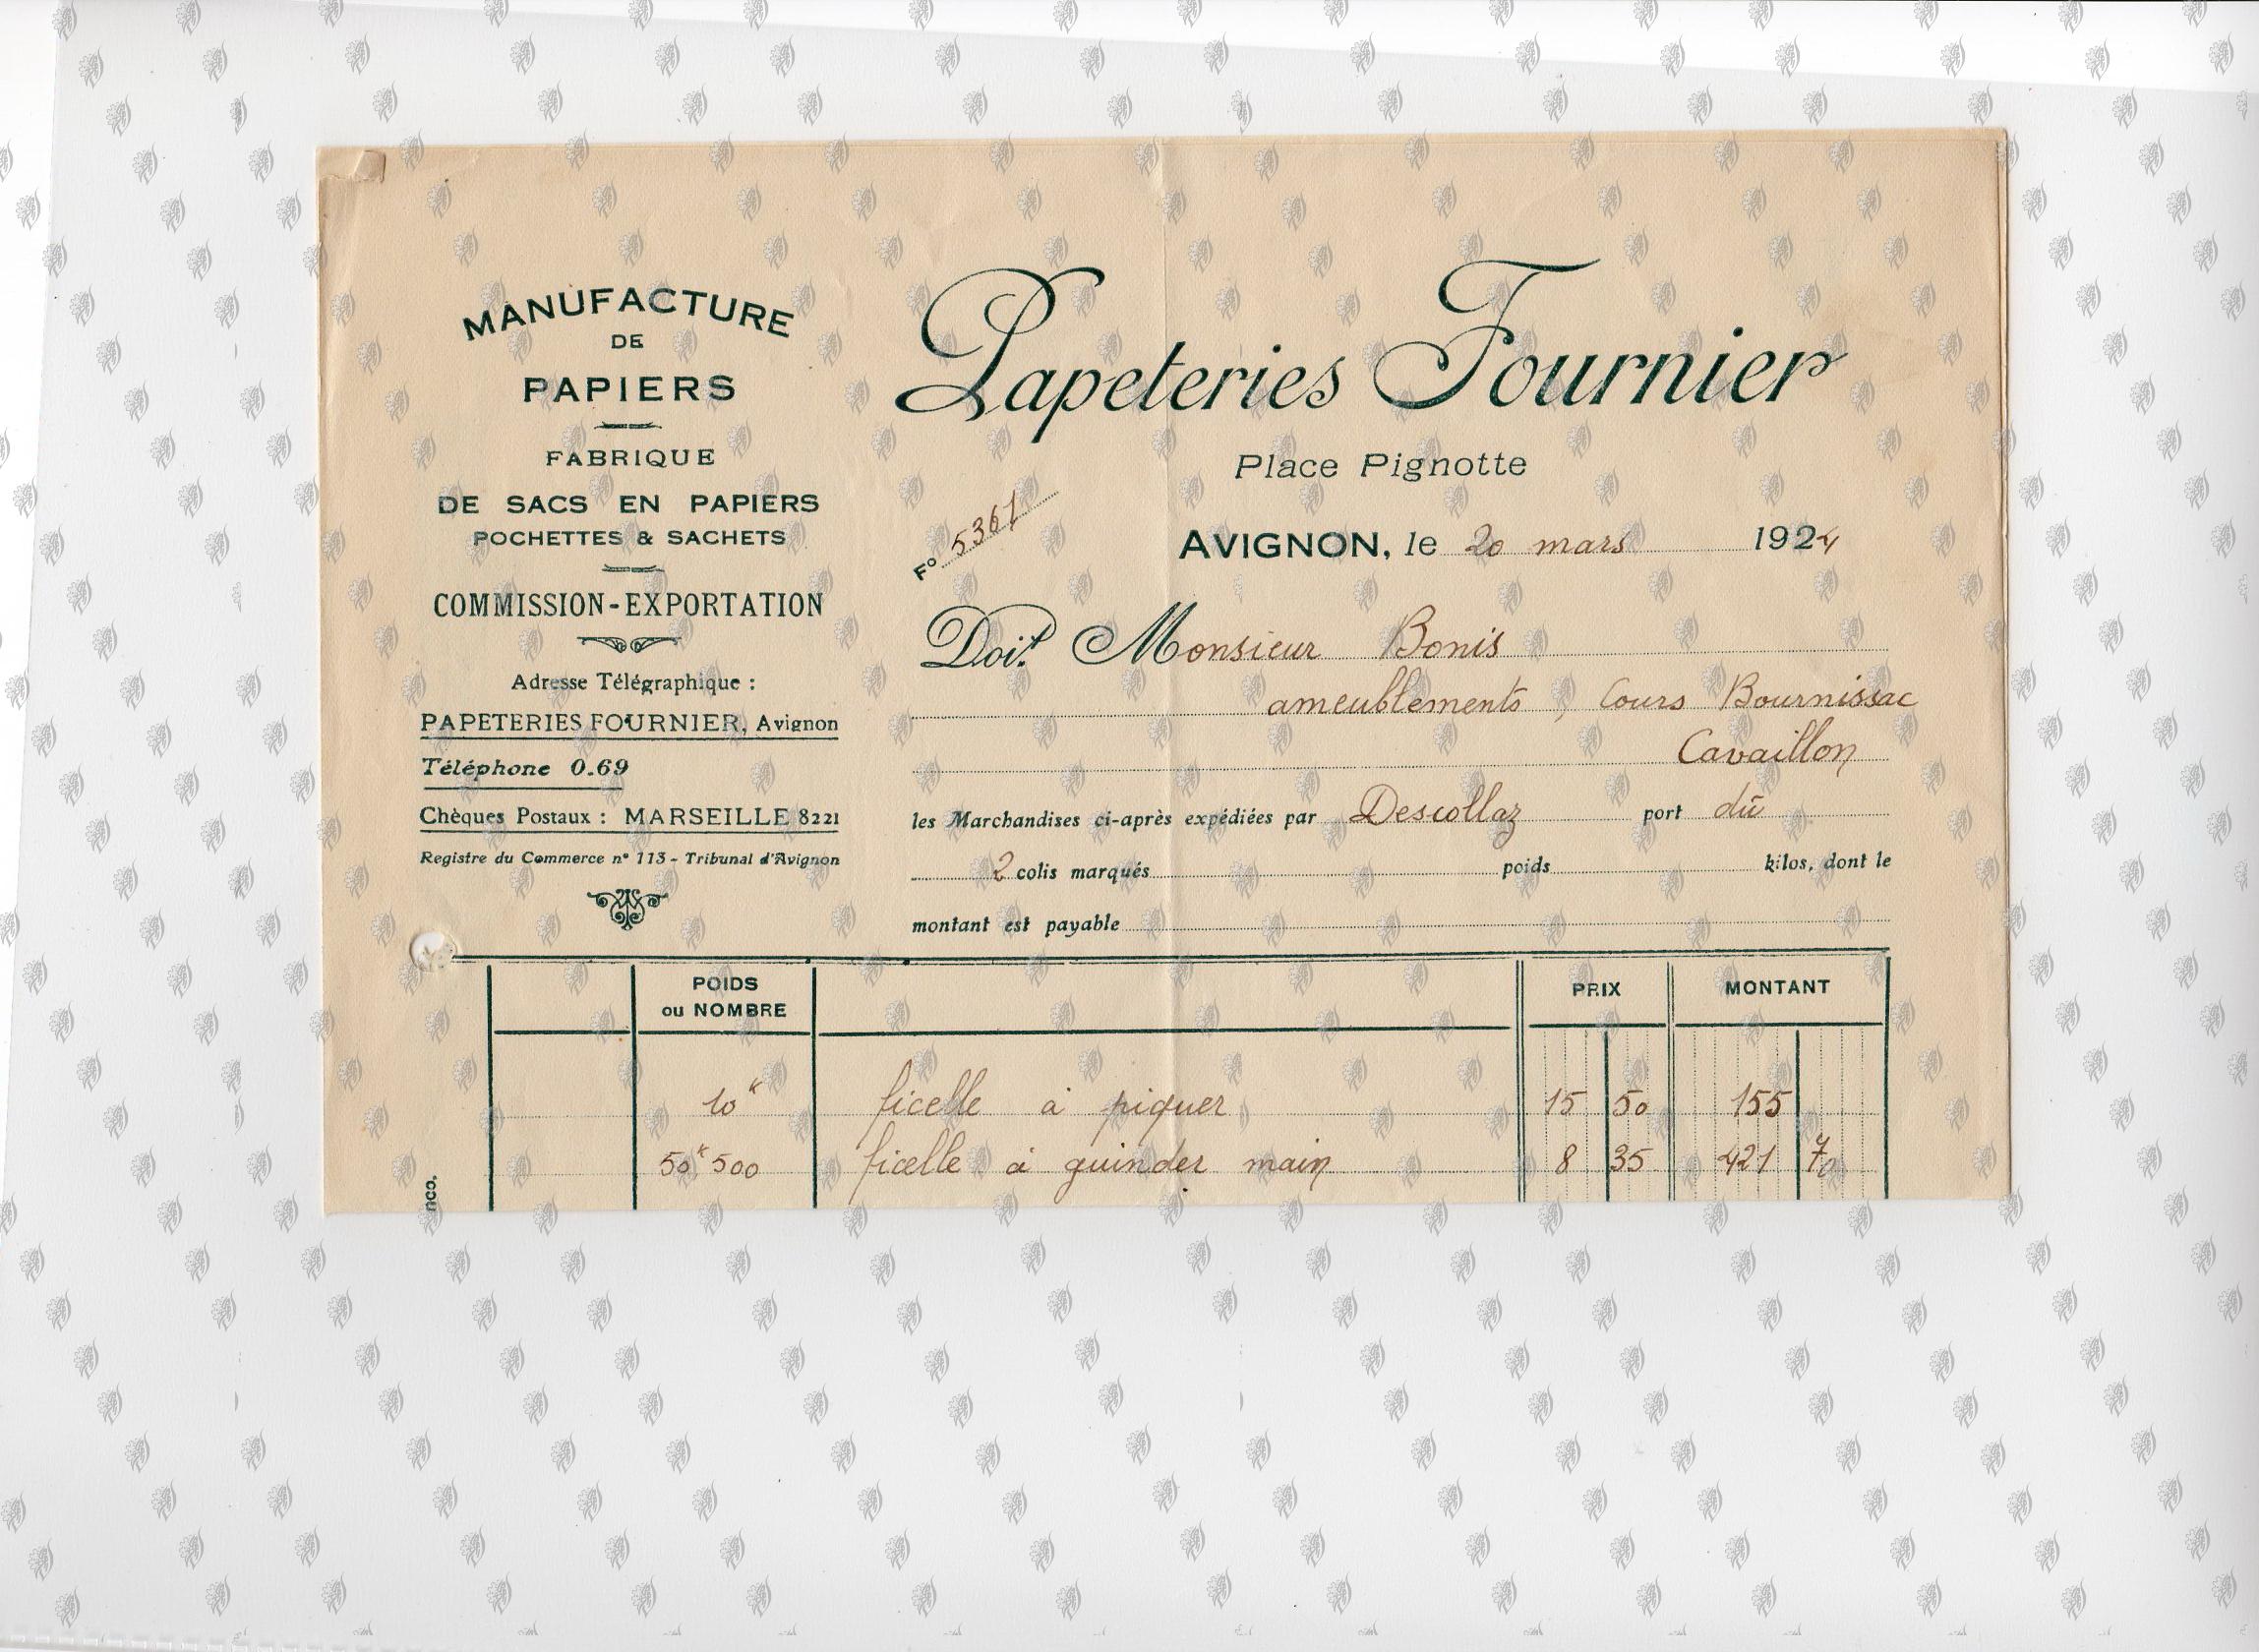 MANUFACTURE
DE
PAPIERS
FABRIQUE
DE SACS EN PAPIERS
POCHETTES & SACHETS
COMMISSION-EXPORTATION
Adresse Télégraphique :
PAPETERIES FOURNIER, Avignon
Téléphone 0.69
Chèques Postaux : MARSEILLE 8221
Registre du Commerce n° 113 - Tribunal d'Avignon
Papeteries Fournier
Place Pignotte
F° 5361
AVIGNON, le 20 mars 1924
Doit Monsieur Bonis
ameublements, Cours Bournissac
Cavaillon
les Marchandises ci-après expédiées par Descollaz port dû
2 colis marqués poids kilos, dont le
montant est payable
POIDS ou NOMBRE PRIX MONTANT
10k ficelle à piquer 15 50 155
50k500 ficelle à guinder main 8 35 421 70
nco.